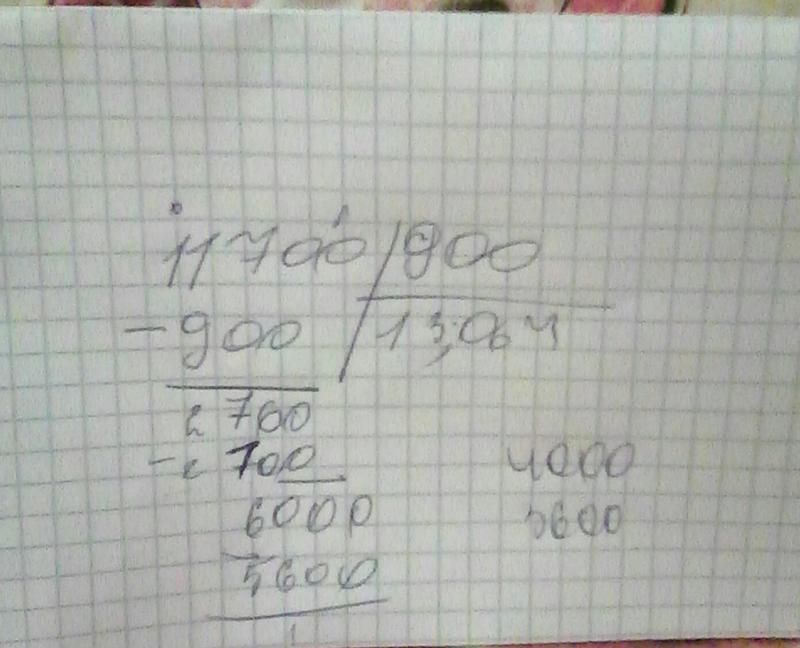 11700 900
-900 13,064
2700
-2700 4000
6000 3600
-5600